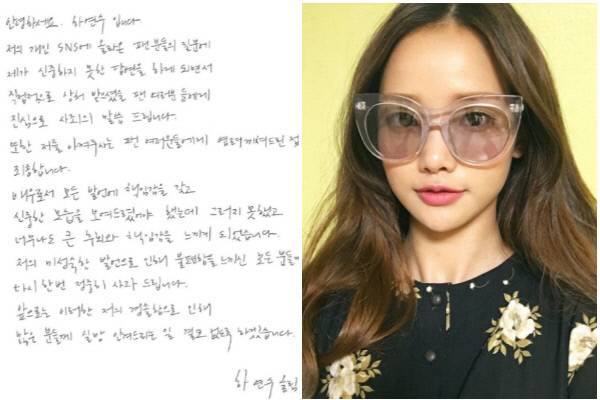 안녕하세요. 하연수 입니다.
저의 개인 SNS에 올라온 팬분들의 질문에
제가 신중하지 못한 답변을 하게 되면서
직접적으로 상처 받으셨을 팬 여러분들에게
진심으로 사과의 말씀 드립니다.
또한 저를 아껴주시는 팬 여러분들에게 염려끼쳐드린 점
죄송합니다.
배우로서 모든 발언에 책임감을 갖고
신중한 모습을 보여드렸어야 했는데 그러지 못했고
너무나도 큰 후회와 책임감을 느끼게 되었습니다.
저의 미성숙한 발언으로 인해 불쾌함을 느끼신 모든 분들께
다시 한번 정중히 사과 드립니다.
앞으로는 이러한 저의 경솔함으로 인해
많은 분들께 실망 안겨드리는 일 결코 없도록 하겠습니다.
하연수 올림